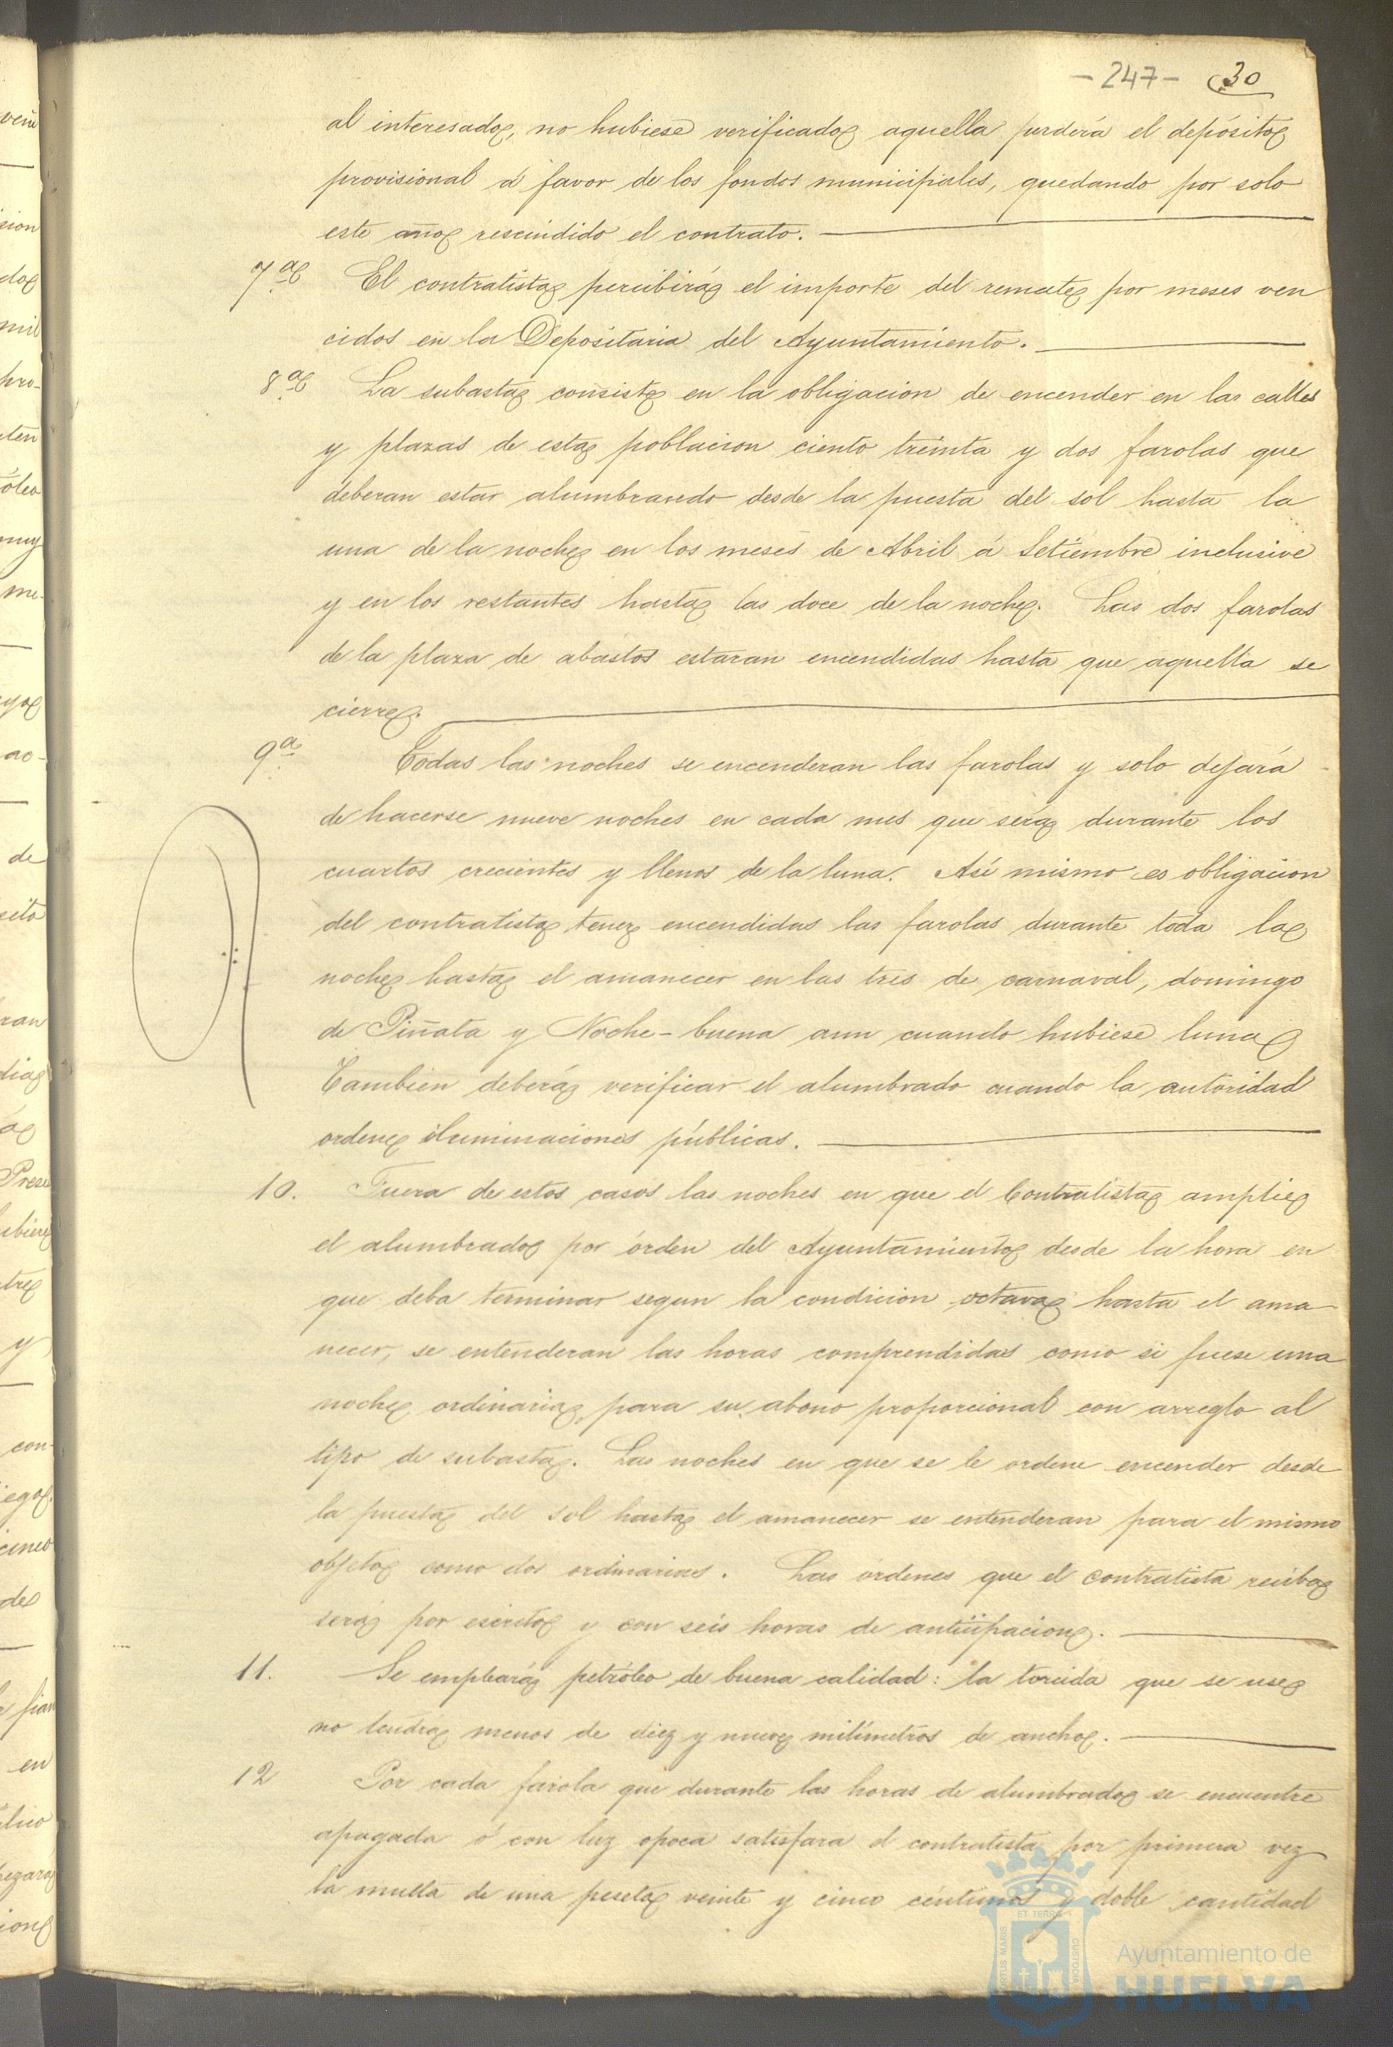 -247- 30
al interesado, no hubiese verificado aquella perderá el depósito
provisional á favor de los fondos municipales, quedando por solo
este año rescindido el contrato.
7ª El contratista percibirá el importe del remate por meses ven
cidos en la Depositaria del Ayuntamiento.
8ª La subasta consiste en la obligacion de encender en las calles
y plazas de esta poblacion ciento treinta y dos farolas que
deberan estar alumbrando desde la puesta del sol hasta la
una de la noche en los meses de Abril á Setiembre inclusive
y en los restantes hasta las doce de la noche. Las dos farolas
de la plaza de abastos estaran encendidas hasta que aquella se
cierre.
9ª Todas las noches se encenderan las farolas y solo dejará
de hacerse nueve noches en cada mes que será durante los
cuartos crecientes y llenos de la luna. Asi mismo es obligacion
del contratista tener encendidas las farolas durante toda la
noche hasta el amanecer en las tres de carnaval, domingo
de Piñata y Noche-buena aun cuando hubiese luna
Tambien deberá verificar el alumbrado cuando la autoridad
ordene iluminaciones públicas.
10. Fuera de estos casos las noches en que el Contratista amplie
el alumbrado por órden del Ayuntamiento desde la hora en
que deba terminar segun la condicion octava hasta el ama
necer, se entenderan las horas comprendidas como si fuese una
noche ordinaria, para su abono proporcional con arreglo al
tipo de subasta. Las noches en que se le ordene encender desde
la puesta del sol hasta el amanecer se entenderan para el mismo
objeto como dos ordinarias. Las órdenes que el contratista reciba
será por escrito y con seis horas de anticipacion.
11. Se empleará petróleo de buena calidad: la torcida que se use
no tendrá menos de diez y nueve milímetros de ancho.
12 Por cada farola que durante las horas de alumbrado se encuentre
apagada ó con luz opaca satisfara el contratista por primera vez
la multa de una peseta veinte y cinco céntimos y doble cantidad
Ayuntamiento de
HUELVA